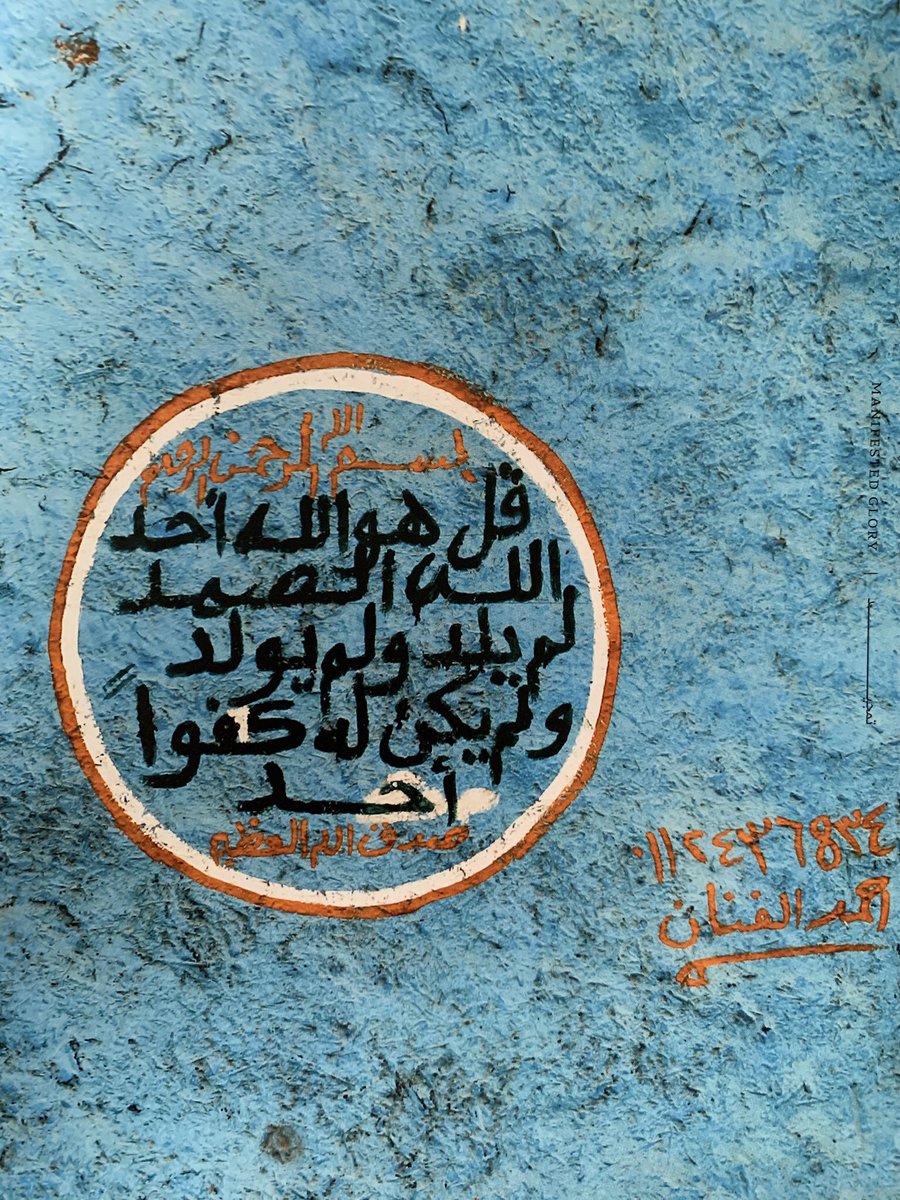 بسم الله الرحمن الرحيم
قل هو الله أحد
الله الصمد
لم يلد ولم يولد
ولم يكن له كفواً
أحد
صدق الله العظيم
٠١١٢٤٣٦٨٣٤
احمد الفنان
MANIFESTED GLORY